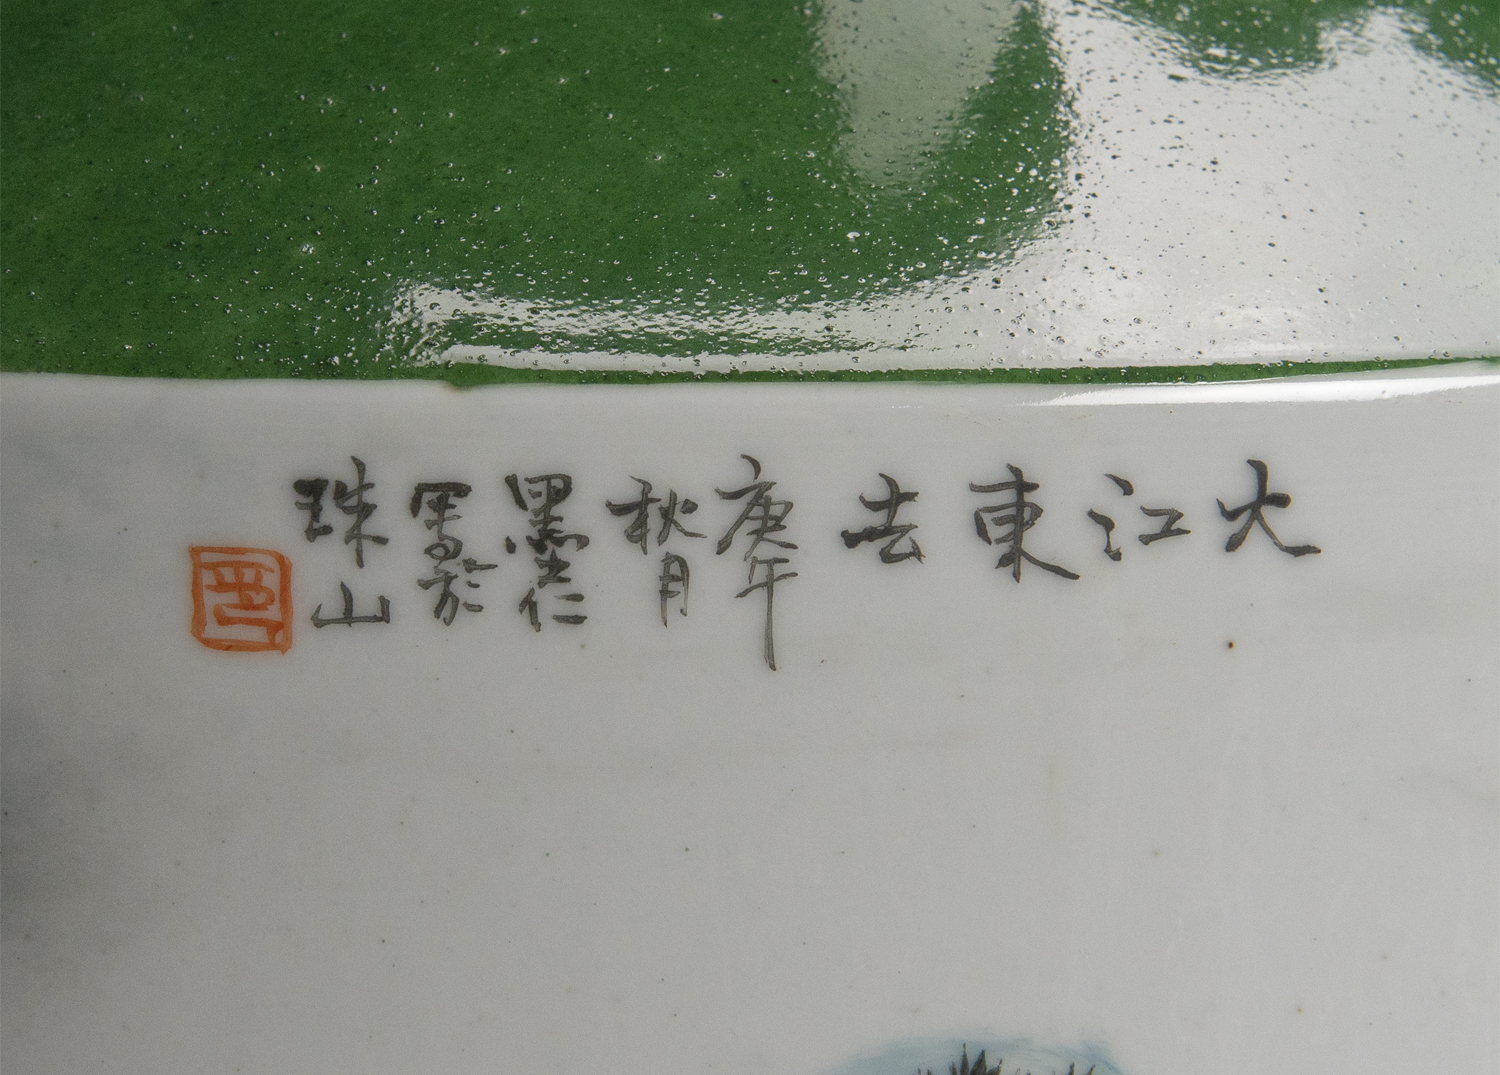 大江東去
庚午
秋月
墨仁
写於
珠山